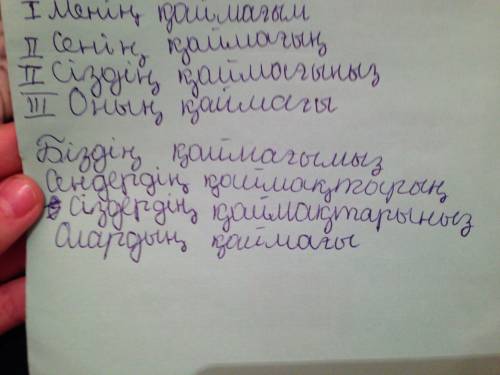 I Менің қаймағым
II Сенің қаймағың
II Сіздің қаймағыңыз
III Оның қаймағы
Біздің қаймағымыз
Сендердің қаймақтарың
Сіздердің қаймақтарыңыз
Олардың қаймағы